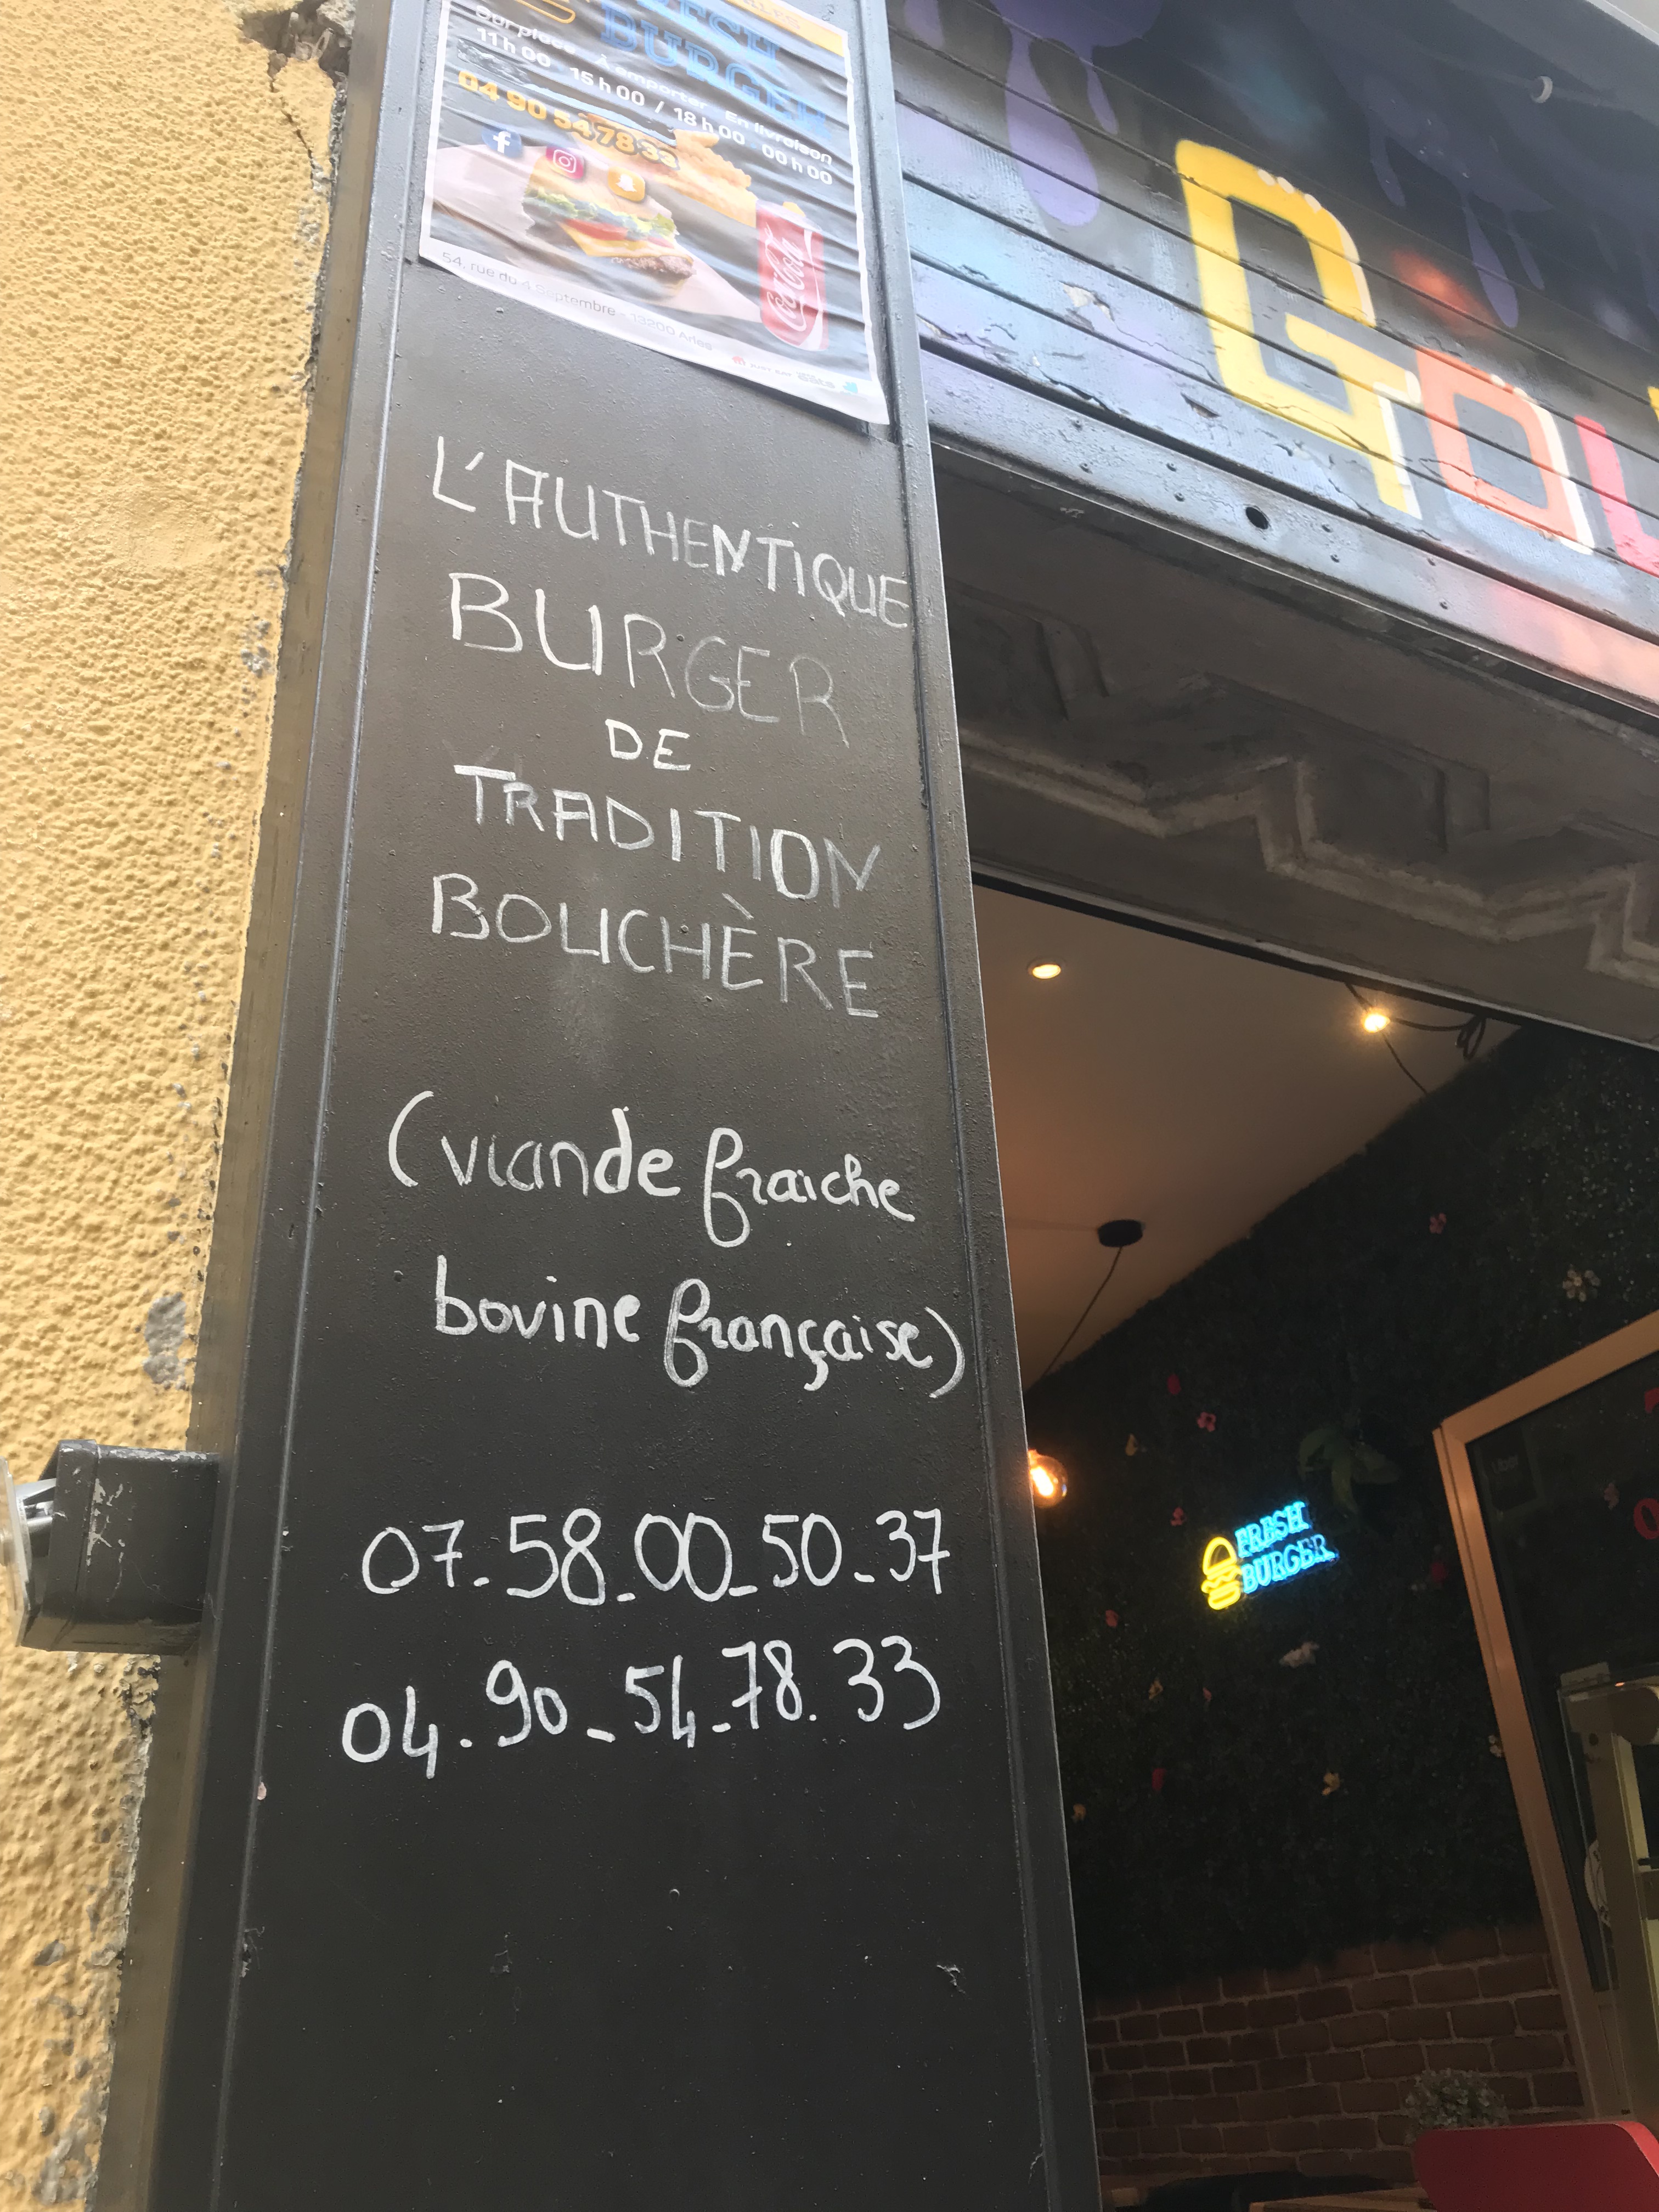 FRESH
BURGER
Sur place À emporter En livraison
11h00 15h00 / 18h00 00h00
04 90 54 78 33
Coca-Cola
54, rue du 4 Septembre - 13200 Arles
L'AUTHENTIQUE
BURGER
DE
TRADITION
BOUCHÈRE
(viande fraiche
bovine française)
07.58.00.50.37
04.90.54.78.33
FRESH
BURGER